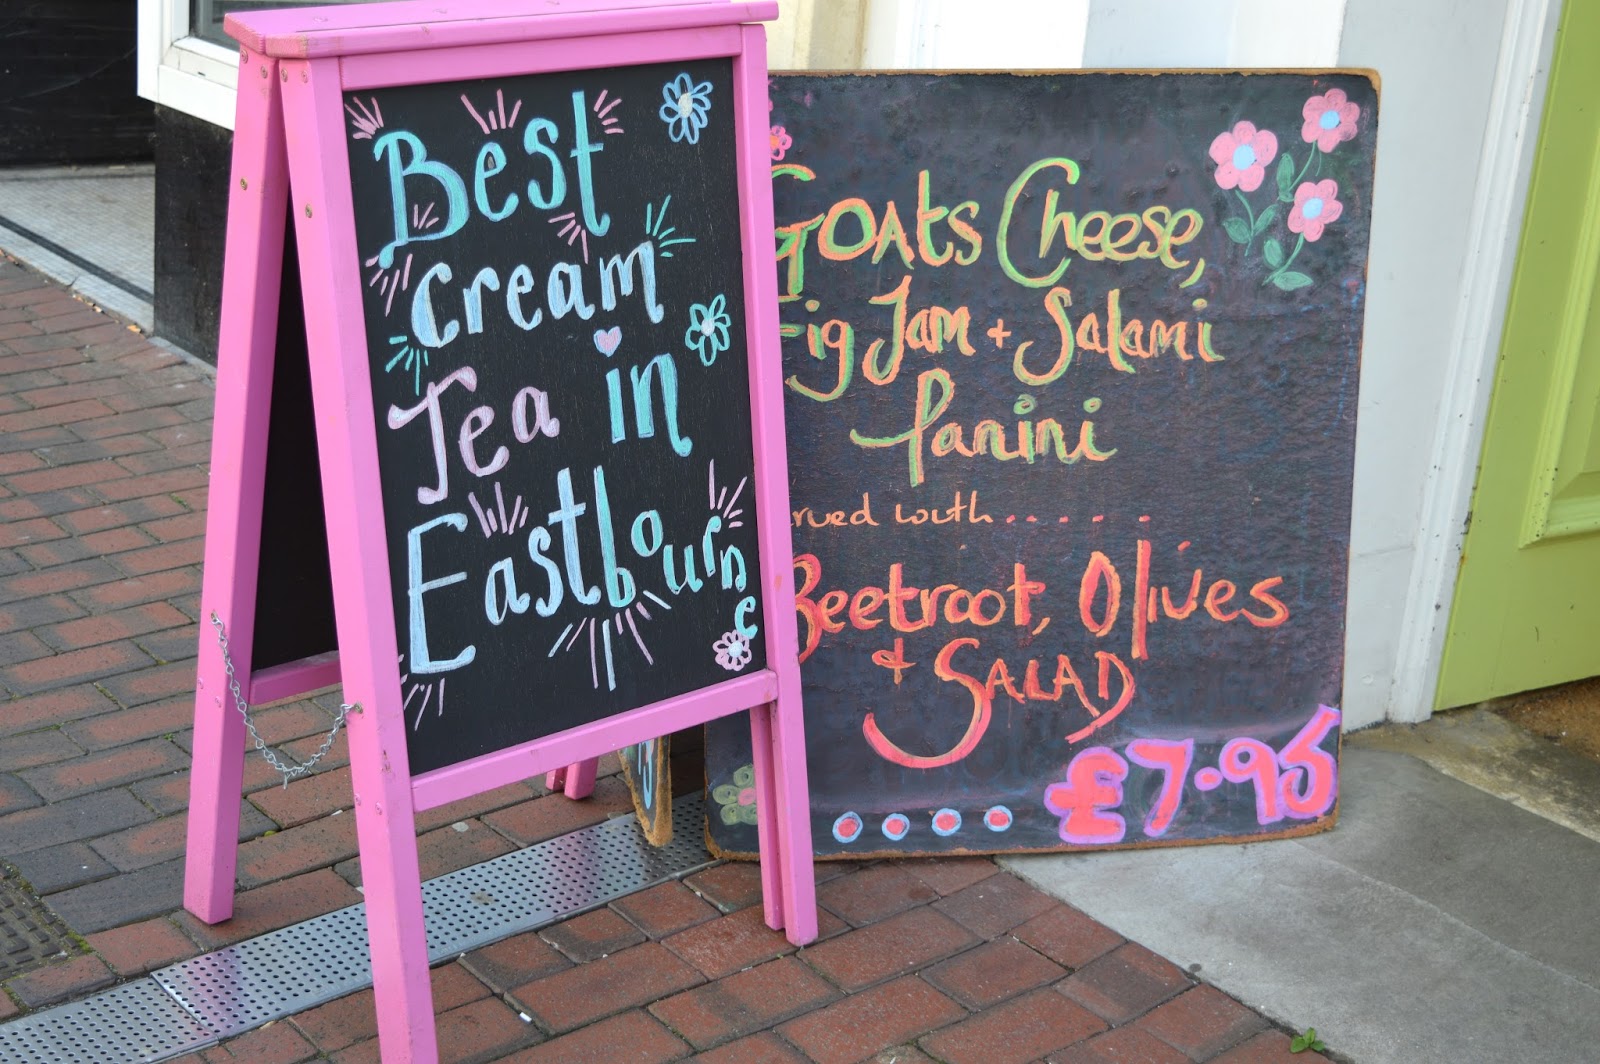 Best
cream
Tea in
Eastbourne
GOAts Cheese,
Fig Jam + Salami
Panini
rved with.....
Beetroot, Olives
& SALAD
£7.95